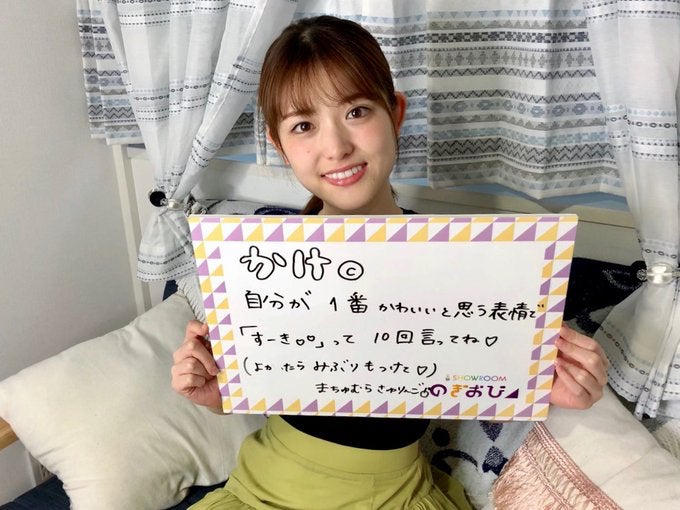 かけ©
自分が 1番 かわいいと思う表情で
「すーき♡♡」って 10回言ってね♡
(よかったら みぶりもつけて♡)
SHOWROOM
まちゅむらさゆりんご♂ のぎおび